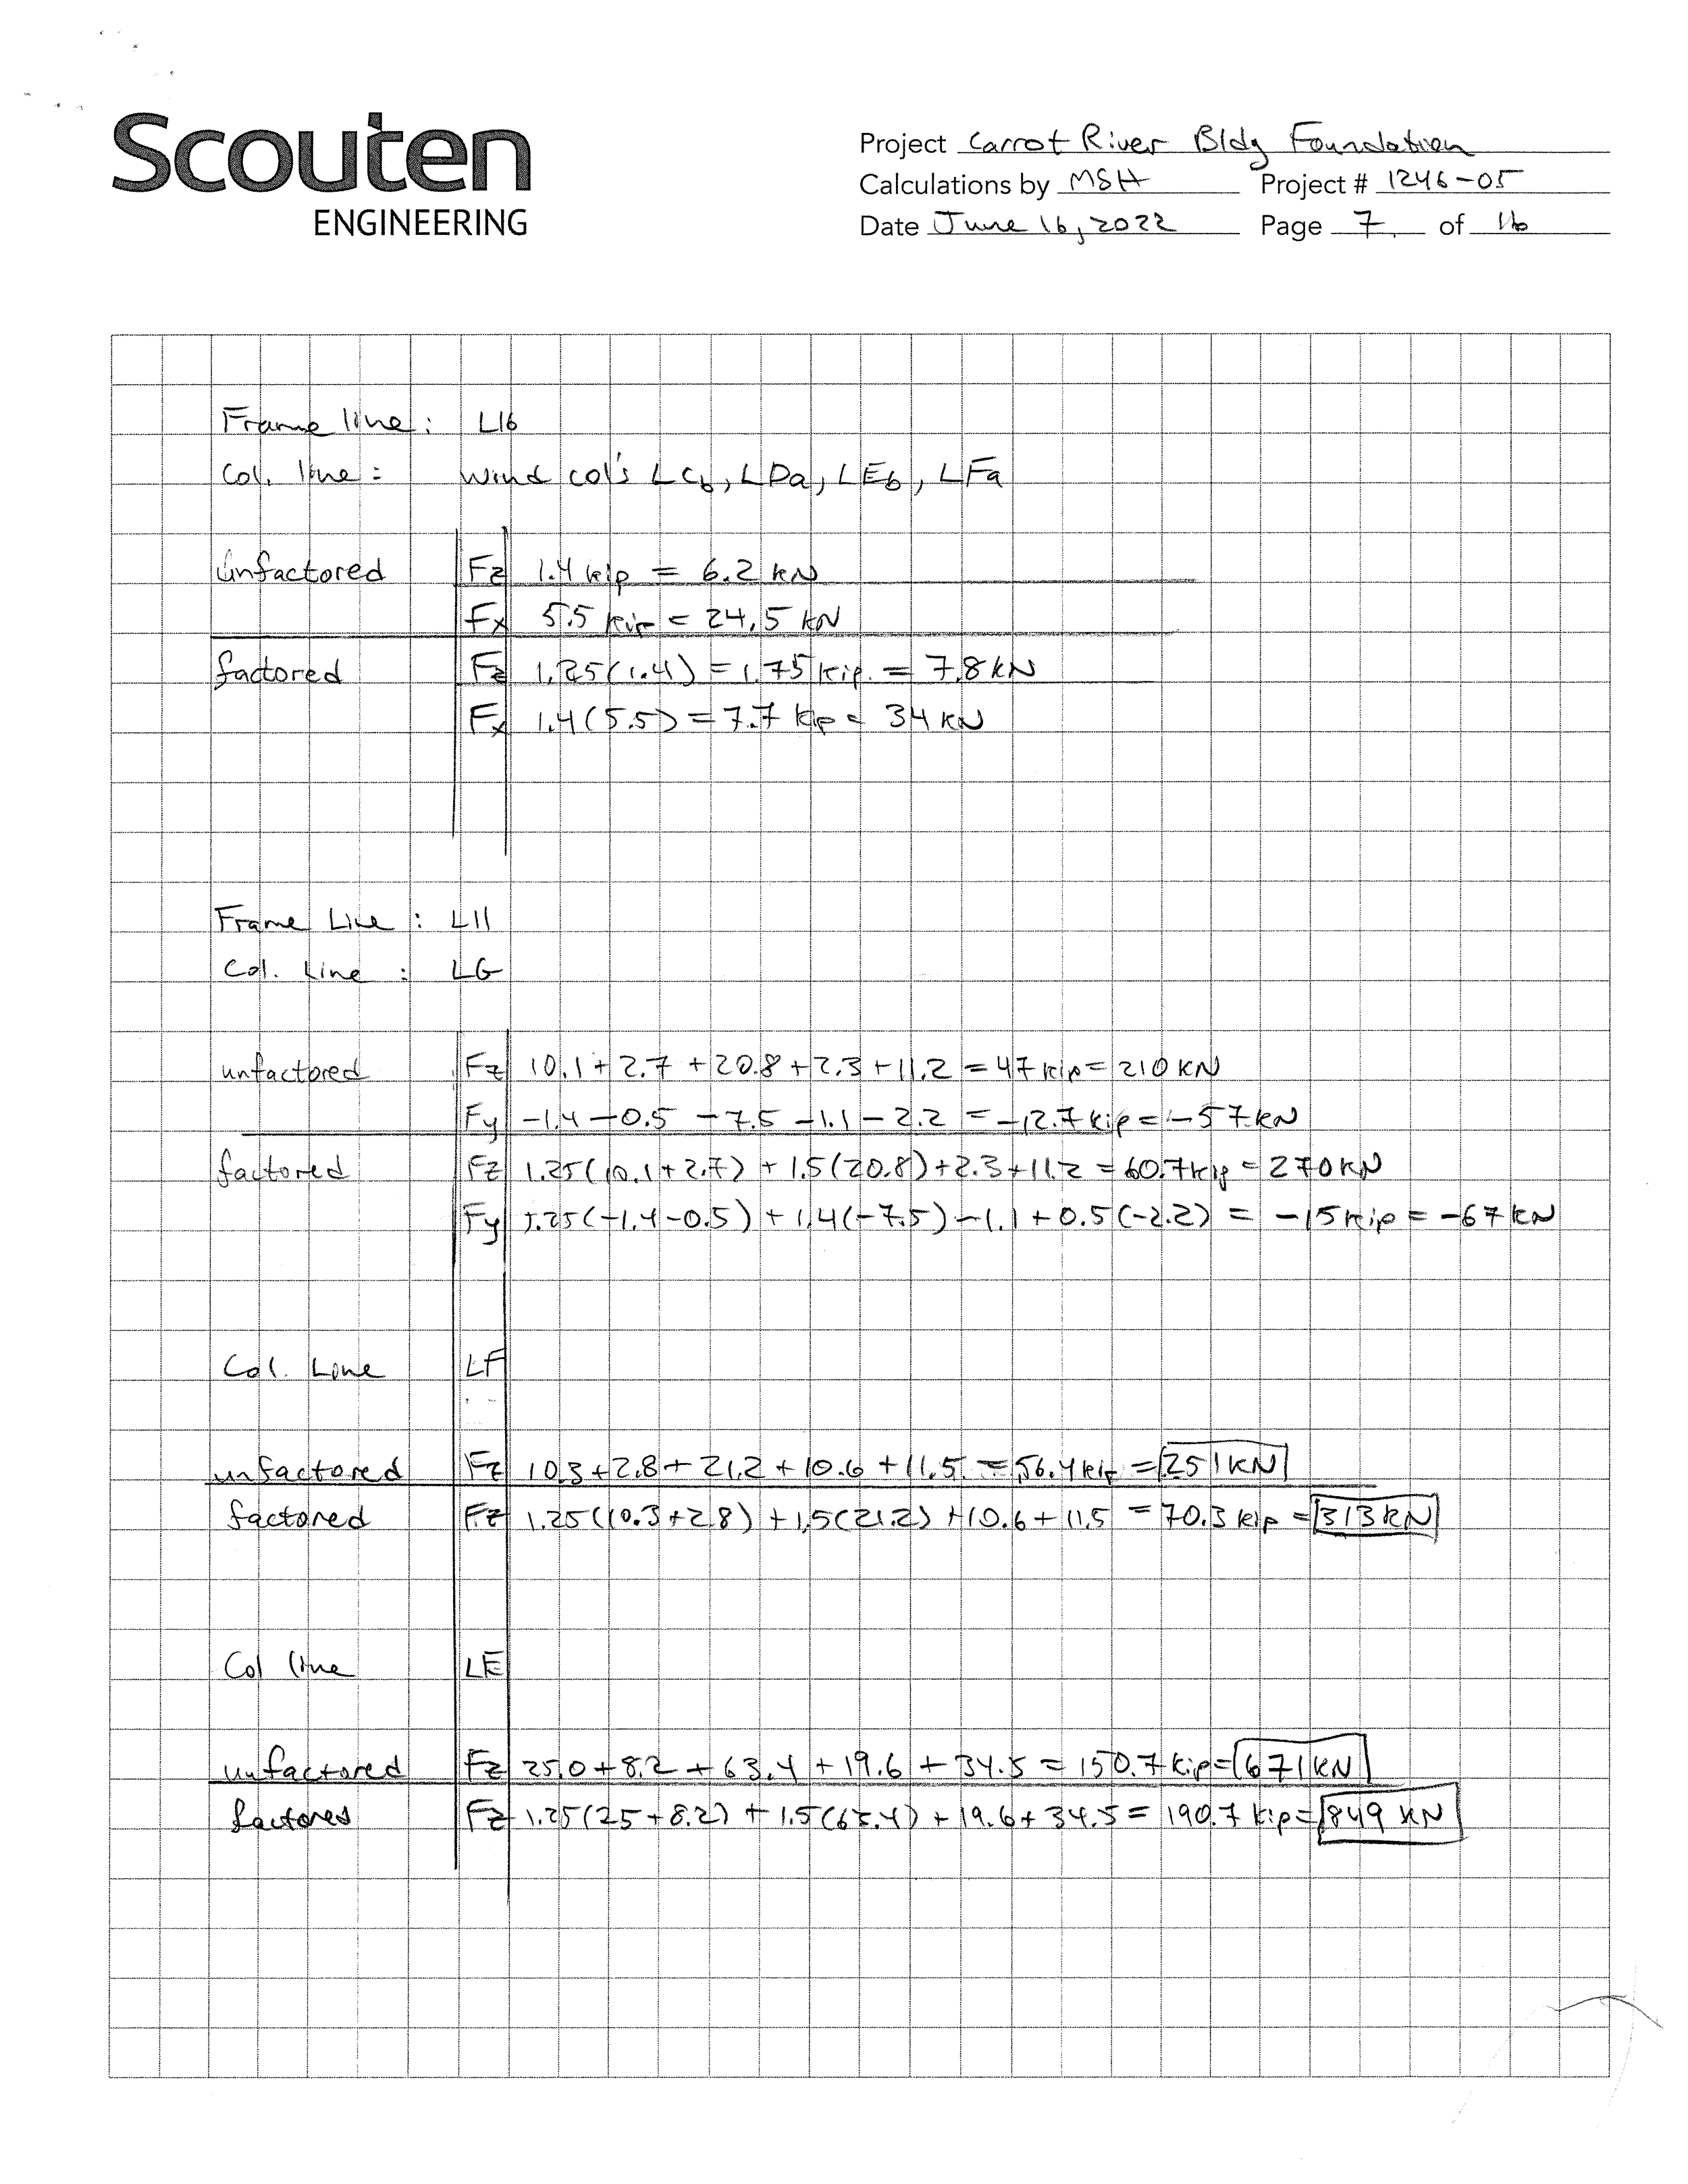 Scouten
ENGINEERING
Project Carrot River Bldg Foundation
Calculations by MSH Project # 1246-05
Date June 16, 2022 Page 7 of 16
Frame line: L16
Col. line: Wind col's LCb, LDa, LEb, LFa
Unfactored Fz 1.4 kip = 6.2 kN
Fx 5.5 kip = 24.5 kN
factored Fz 1.25(1.4) = 1.75 kip. = 7.8 kN
Fx 1.4(5.5) = 7.7 kip = 34 kN
Frame Line: L11
Col. Line: LG
unfactored Fz 10.1 + 2.7 + 20.8 + 2.3 + 11.2 = 47 kip = 210 KN
Fy -1.4 - 0.5 - 7.5 - 1.1 - 2.2 = -12.7 kip = -57 kN
factored Fz 1.25(10.1 + 2.7) + 1.5(20.8) + 2.3 + 11.2 = 60.7 kip = 270 KN
Fy 1.25(-1.4 - 0.5) + 1.4(-7.5) - 1.1 + 0.5(-2.2) = -15 kip = -67 KN
Col. Line LF
unfactored Fz 10.3 + 2.8 + 21.2 + 10.6 + 11.5 = 56.4 kip = 251 KN
factored Fz 1.25(10.3 + 2.8) + 1.5(21.2) + 10.6 + 11.5 = 70.3 kip = 313 KN
Col line LE
unfactored Fz 25.0 + 8.2 + 63.4 + 19.6 + 34.5 = 150.7 kip = 671 KN
factored Fz 1.25(25 + 8.2) + 1.5(63.4) + 19.6 + 34.5 = 190.7 kip = 849 KN